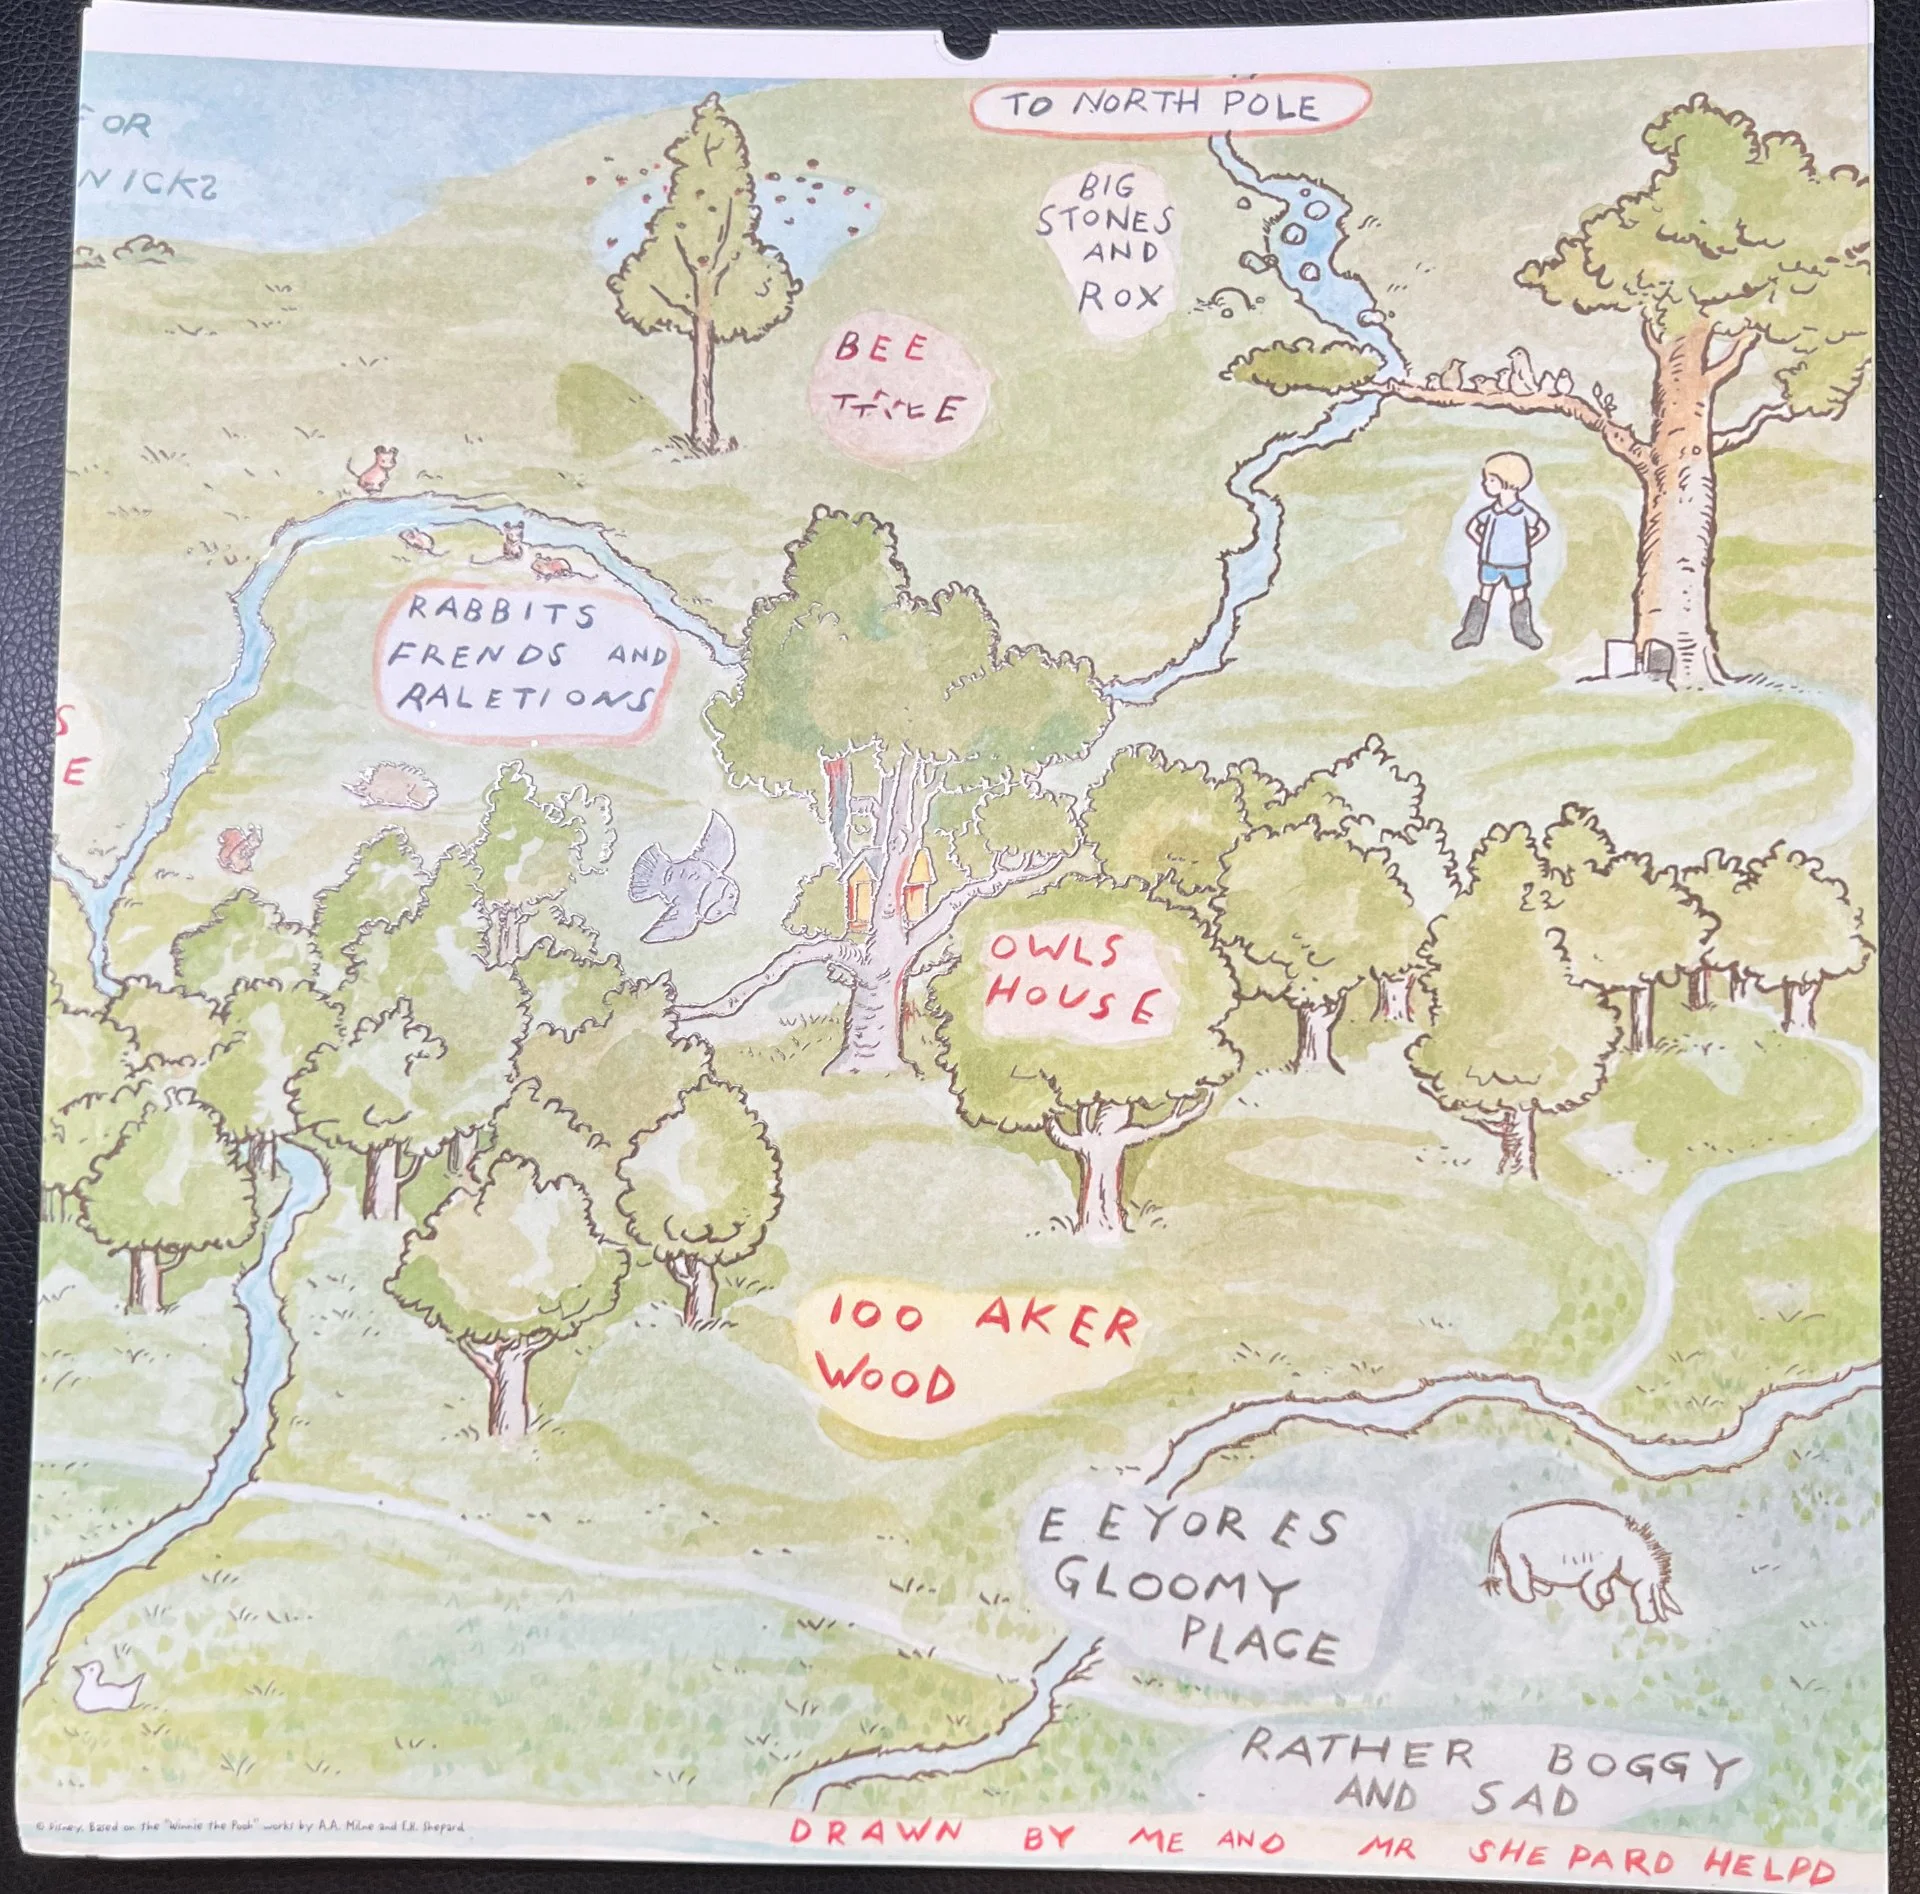 TO NORTH POLE
OR
NICKS
BIG
STONES
AND
ROX
BEE
TREE
RABBITS
FRENDS AND
RALETIONS
S
E
OWLS
HOUSE
100 AKER
WOOD
EEYORES
GLOOMY
PLACE
RATHER BOGGY
AND SAD
© Disney. Based on the "Winnie the Pooh" works by A.A. Milne and E.H. Shepard
DRAWN BY ME AND MR SHEPARD HELPD